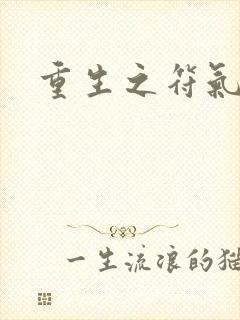 重生之符氣
一生流浪的猫